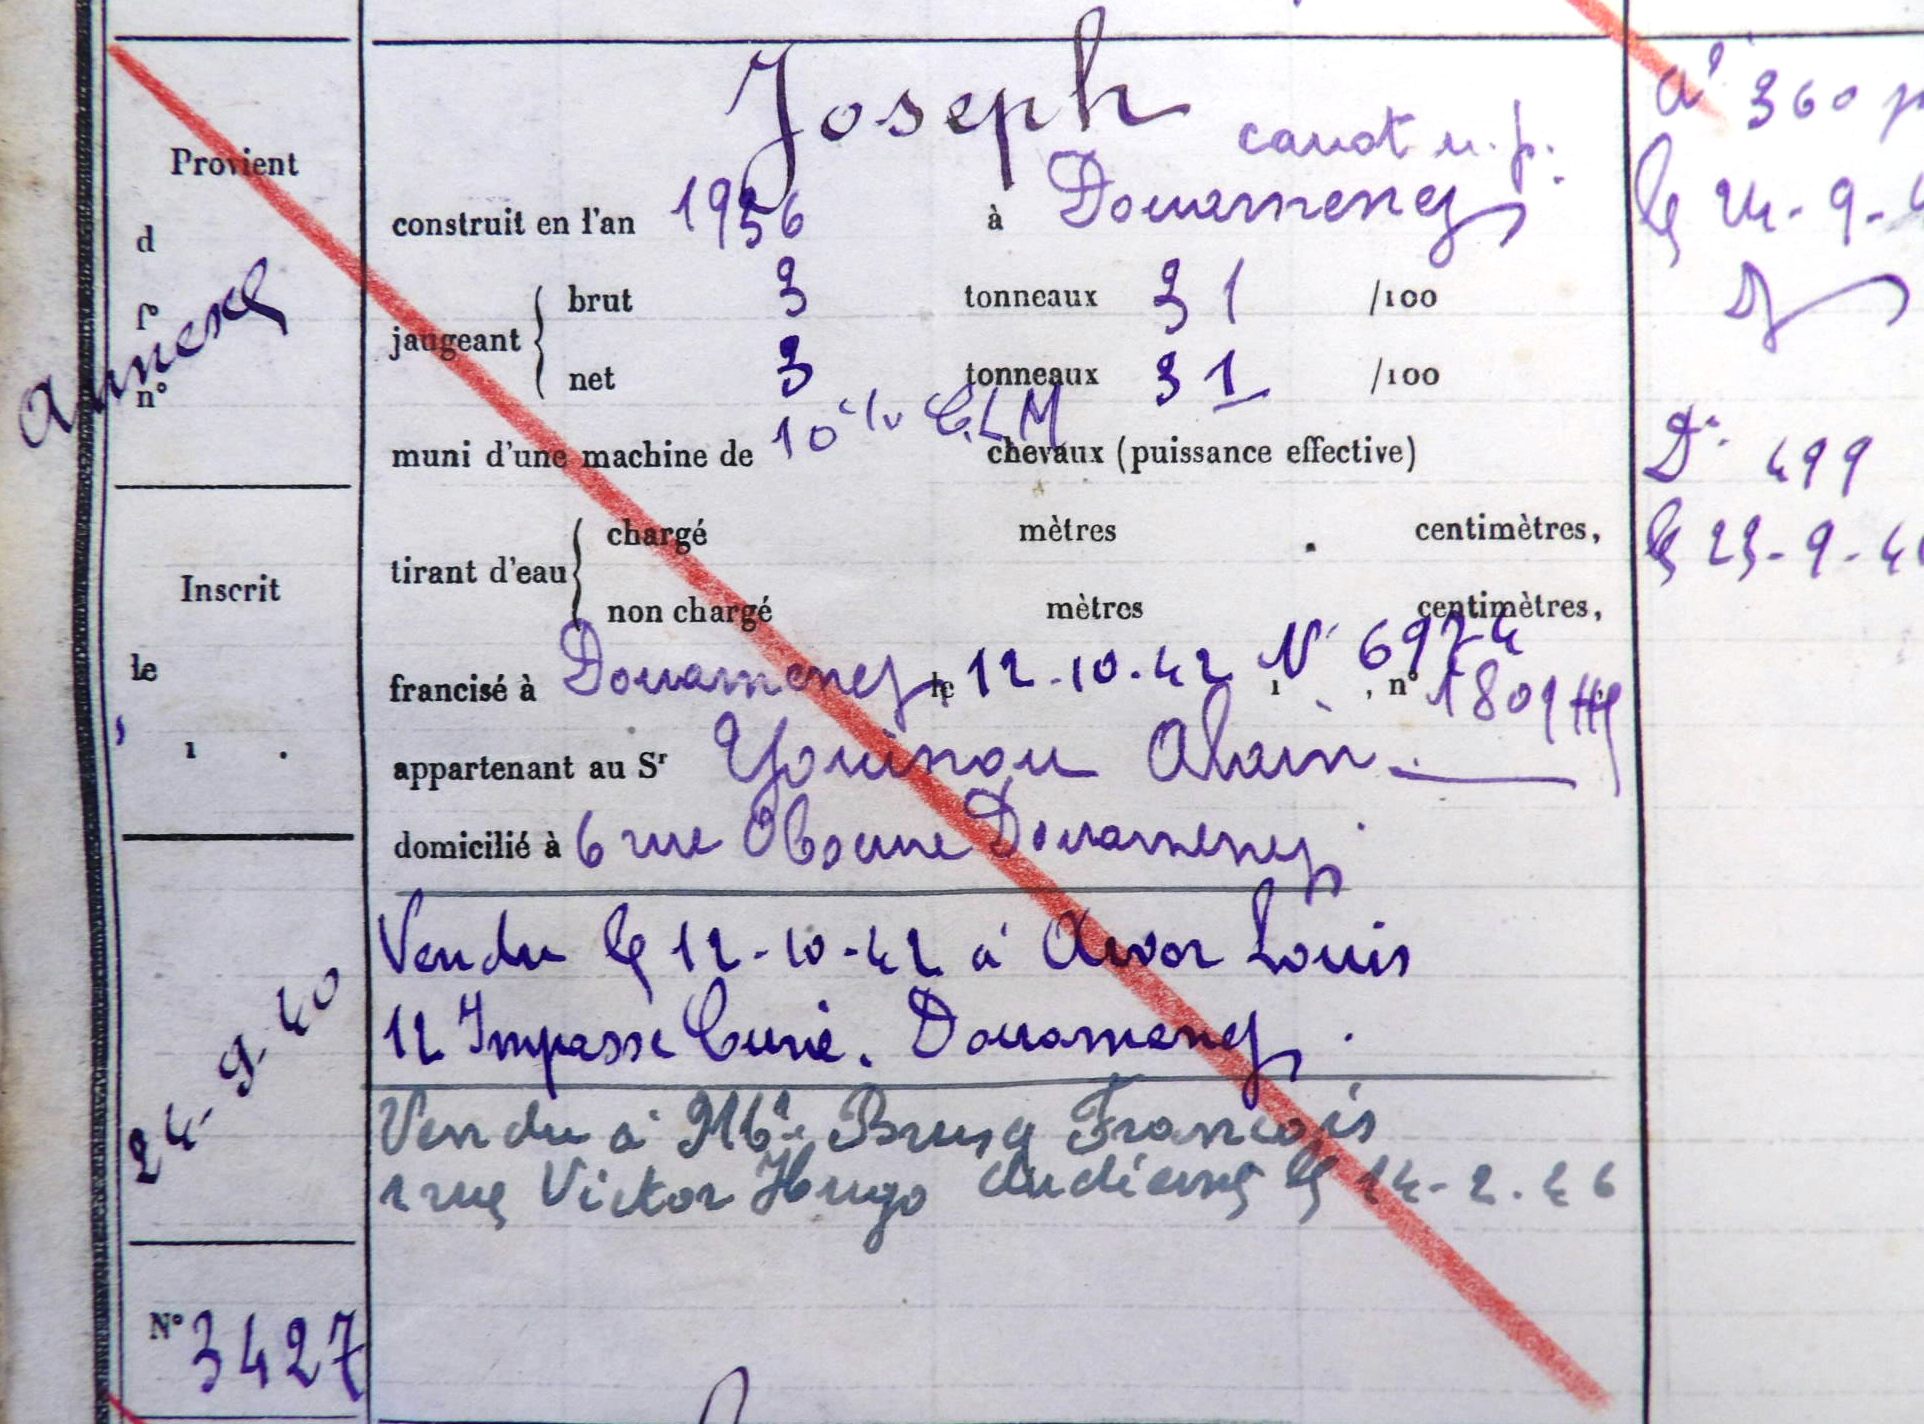 Joseph
canot n. p.
Provient
d
r
n°
Annexe
construit en l'an 1936 à Douarnenez
jaugeant brut 3 tonneaux 31 /100
net 3 tonneaux 31 /100
muni d'une machine de 10 CLM chevaux (puissance effective)
tirant d'eau chargé mètres centimètres,
non chargé mètres centimètres,
francisé à Douarnenez le 12.10.42 N° 6974 , n° 1809
appartenant au Sr Youinou Alain
domicilié à 6 rue Obscure Douarnenez
Vendu le 12-10-42 à Arvor Louis
12 Impasse Curie. Douarnenez.
Vendu à Brusq François
1 rue Victor Hugo Audierne le 14-2-46
Inscrit
le
24-9-40
N° 3427
360
le 24-9-
D° 499
le 23-9-4